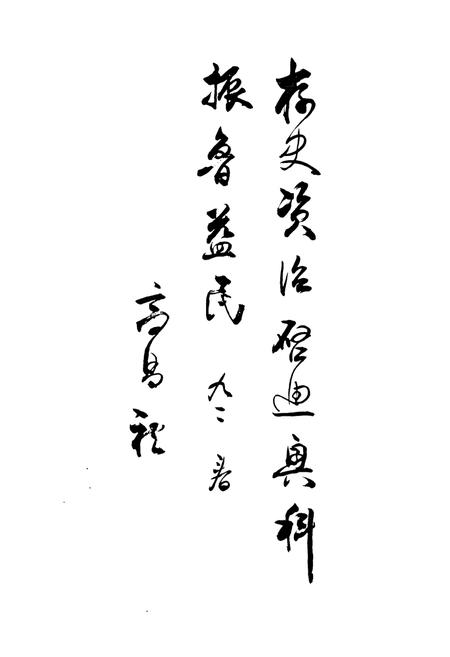 存史资治启迪兴科
振鲁益民 九二 春
高昌礼